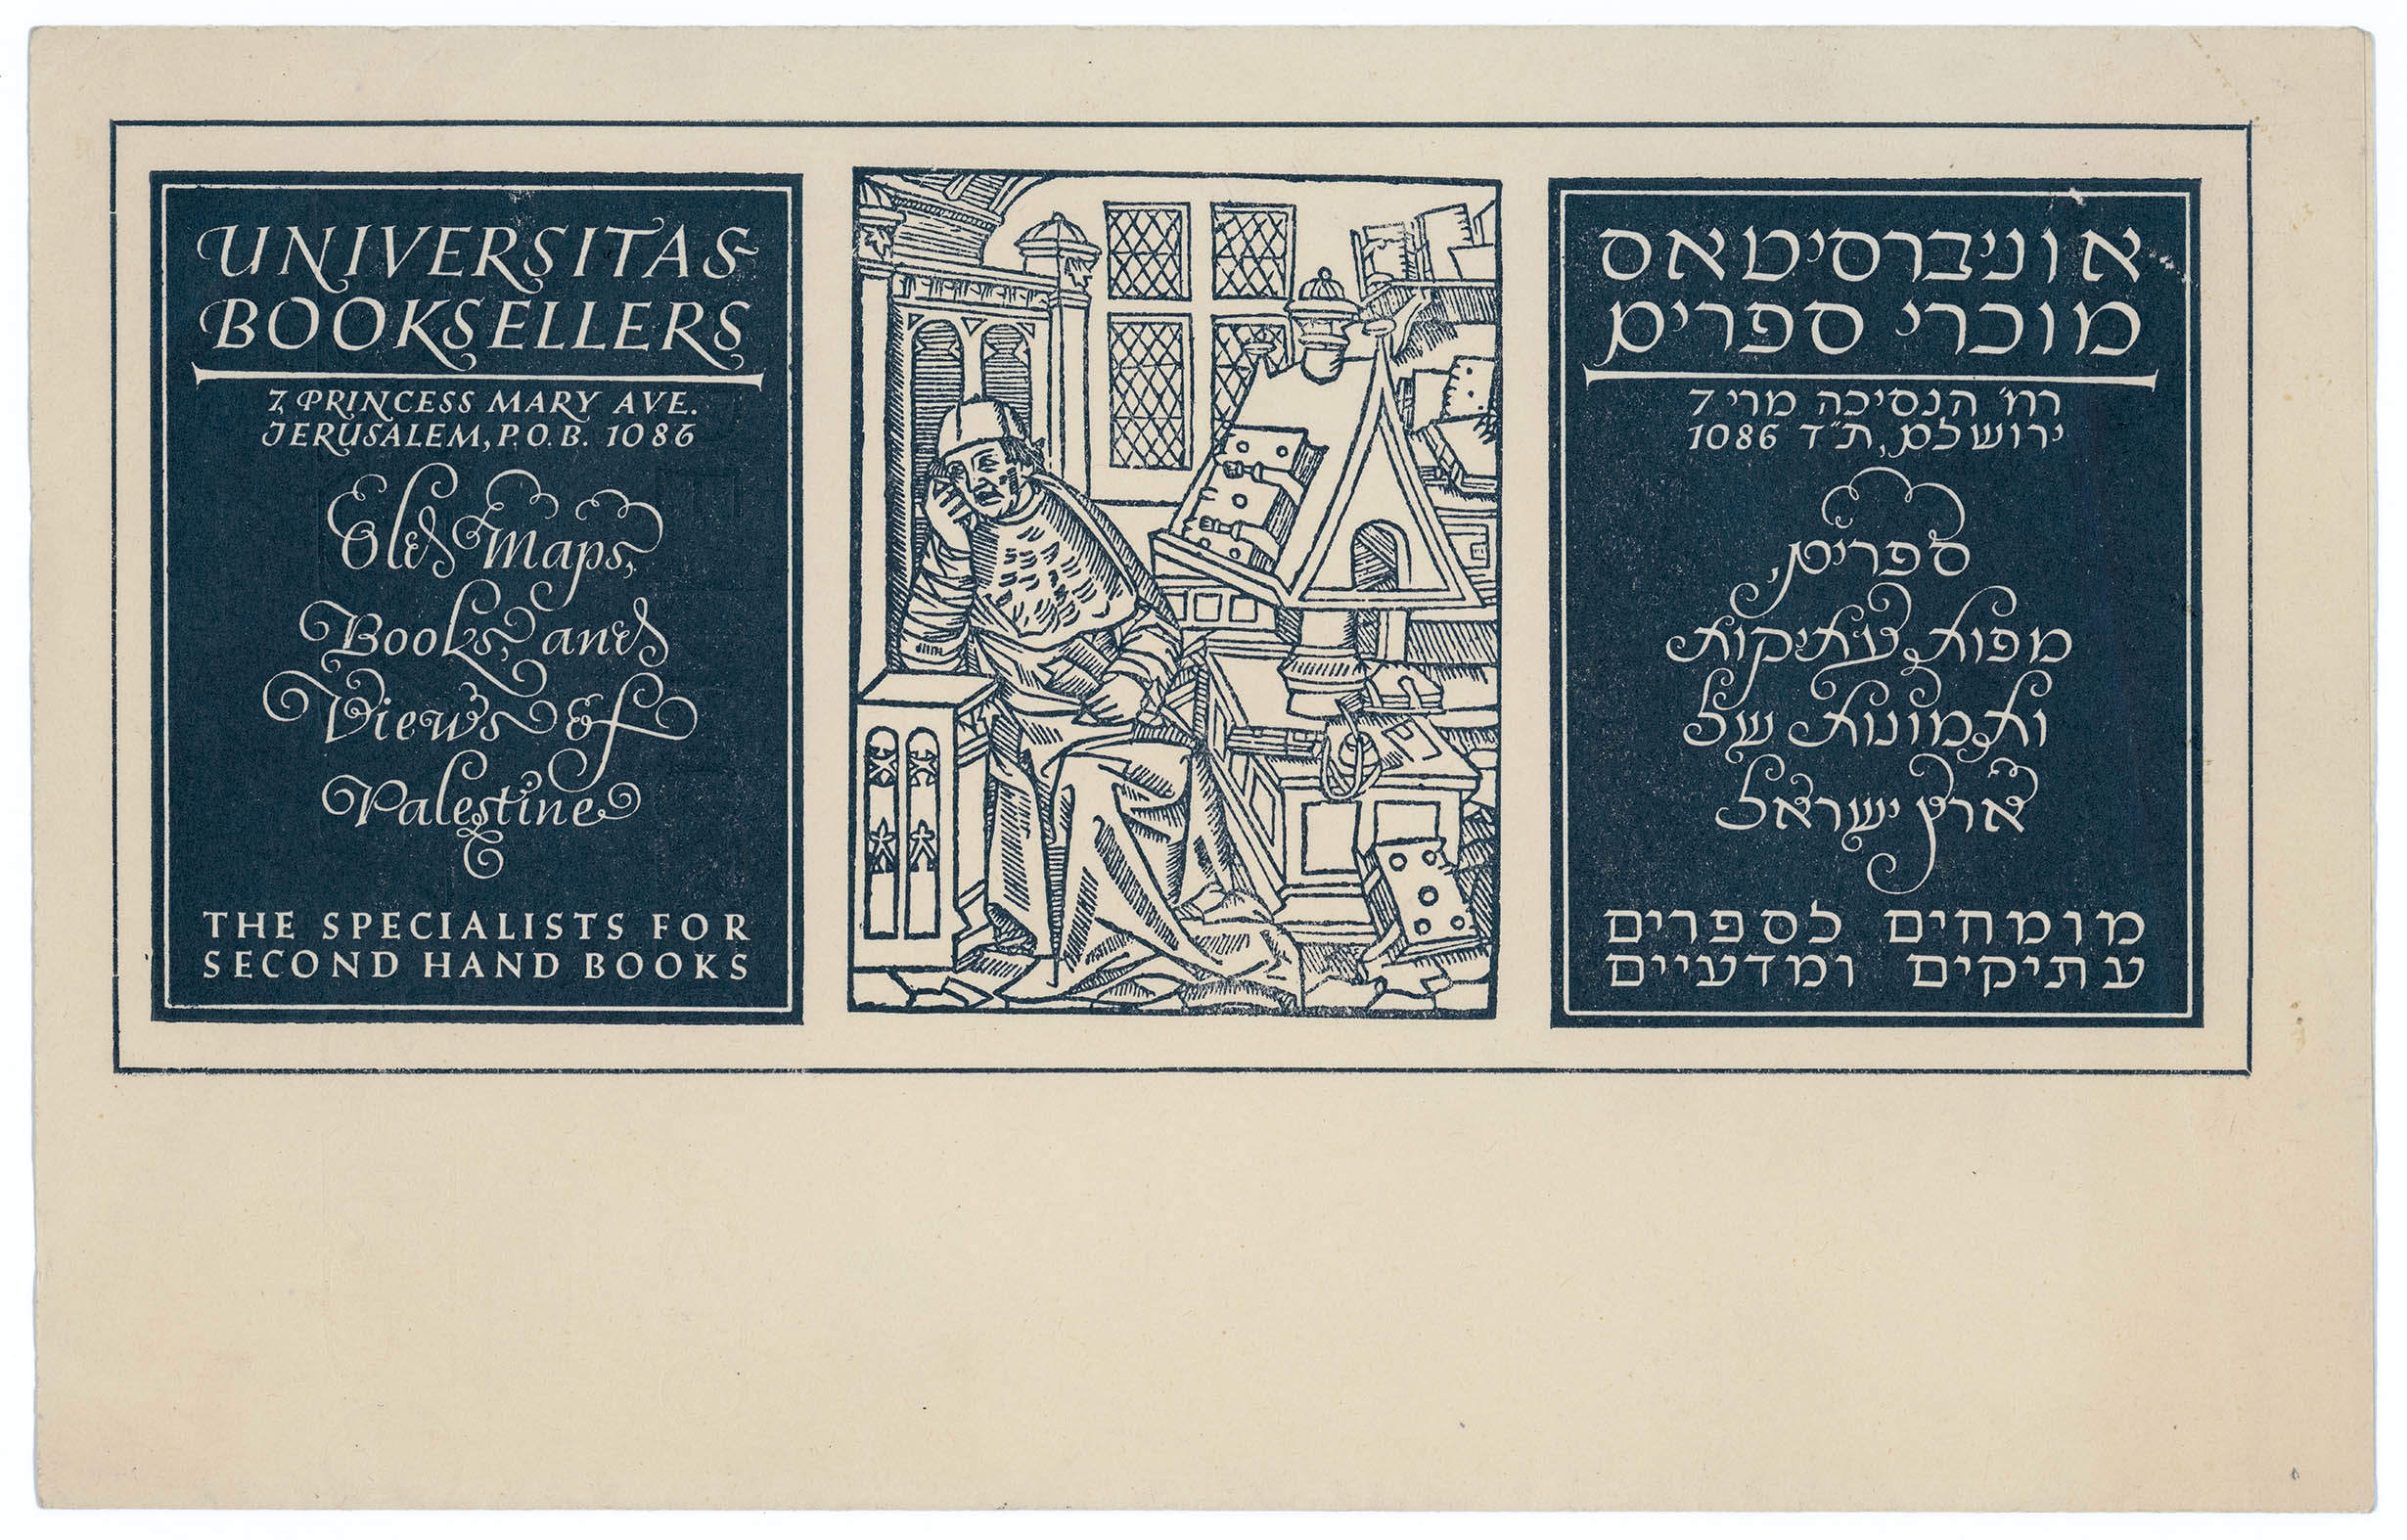 UNIVERSITAS
BOOKSELLERS
7, PRINCESS MARY AVE.
JERUSALEM, P.O.B. 1086
Old Maps,
Books, and
Views of
Palestine
THE SPECIALISTS FOR
SECOND HAND BOOKS
אוניברסיטאס
מוכרי ספרים
רח׳ הנסיכה מרי 7
ירושלם, ת״ד 1086
ספרים,
מפות עתיקות
ותמונות של
ארץ ישראל
מומחים לספרים
עתיקים ומדעיים